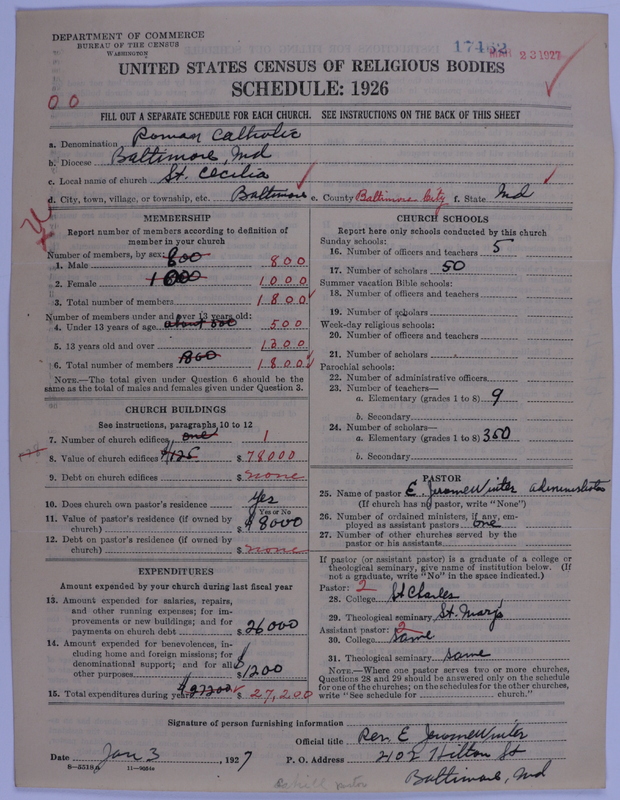 DEPARTMENT OF COMMERCE
BUREAU OF THE CENSUS
WASHINGTON
17462
MAR 23 1927
UNITED STATES CENSUS OF RELIGIOUS BODIES
SCHEDULE: 1926
0 0
FILL OUT A SEPARATE SCHEDULE FOR EACH CHURCH. SEE INSTRUCTIONS ON THE BACK OF THIS SHEET
a. Denomination Roman Catholic
b. Diocese Baltimore, Md
c. Local name of church St. Cecilia
d. City, town, village, or township, etc. Baltimore e. County Baltimore City f. State Md
MEMBERSHIP
Report number of members according to definition of
member in your church
Number of members, by sex:
1. Male 800 800
2. Female 1000 1000
3. Total number of members 1800
Number of members under and over 13 years old:
4. Under 13 years of age about 500 500
5. 13 years old and over 1300
6. Total number of members 1800 1800
NOTE.—The total given under Question 6 should be the
same as the total of males and females given under Question 3.
CHURCH BUILDINGS
See instructions, paragraphs 10 to 12
7. Number of church edifices one 1
8. Value of church edifices $126 $ 78000
9. Debt on church edifices $ none
10. Does church own pastor's residence Yes
Yes or No
11. Value of pastor's residence (if owned by
church) $ 8000
12. Debt on pastor's residence (if owned by
church) $ none
EXPENDITURES
Amount expended by your church during last fiscal year
13. Amount expended for salaries, repairs,
and other running expenses; for im-
provements or new buildings; and for
payments on church debt $ 26000
14. Amount expended for benevolences, in-
cluding home and foreign missions; for
denominational support; and for all
other purposes $ 1200
15. Total expenditures during year $27200 $ 27,200
CHURCH SCHOOLS
Report here only schools conducted by this church
Sunday schools:
16. Number of officers and teachers 5
17. Number of scholars 50
Summer vacation Bible schools:
18. Number of officers and teachers
19. Number of scholars
Week-day religious schools:
20. Number of officers and teachers
21. Number of scholars
Parochial schools:
22. Number of administrative officers
23. Number of teachers—
a. Elementary (grades 1 to 8) 9
b. Secondary
24. Number of scholars—
a. Elementary (grades 1 to 8) 350
b. Secondary
PASTOR
25. Name of pastor E. Jerome Winter administrator
(If church has no pastor, write "None")
26. Number of ordained ministers, if any, em-
ployed as assistant pastors one
27. Number of other churches served by the
pastor or his assistants
If pastor (or assistant pastor) is a graduate of a college or
theological seminary, give name of institution below. (If
not a graduate, write "No" in the space indicated.)
Pastor: 2
28. College St Charles
29. Theological seminary St. Marys
Assistant pastor: 2
30. College same
31. Theological seminary same
NOTE.—Where one pastor serves two or more churches,
Questions 28 and 29 should be answered only on the schedule
for one of the churches; on the schedules for the other churches,
write "See schedule for church."
Signature of person furnishing information
Official title Rev. E Jerome Winter
Date Jan 3, 1927 P. O. Address 2402 Hilton St
8—5518
Baltimore, Md